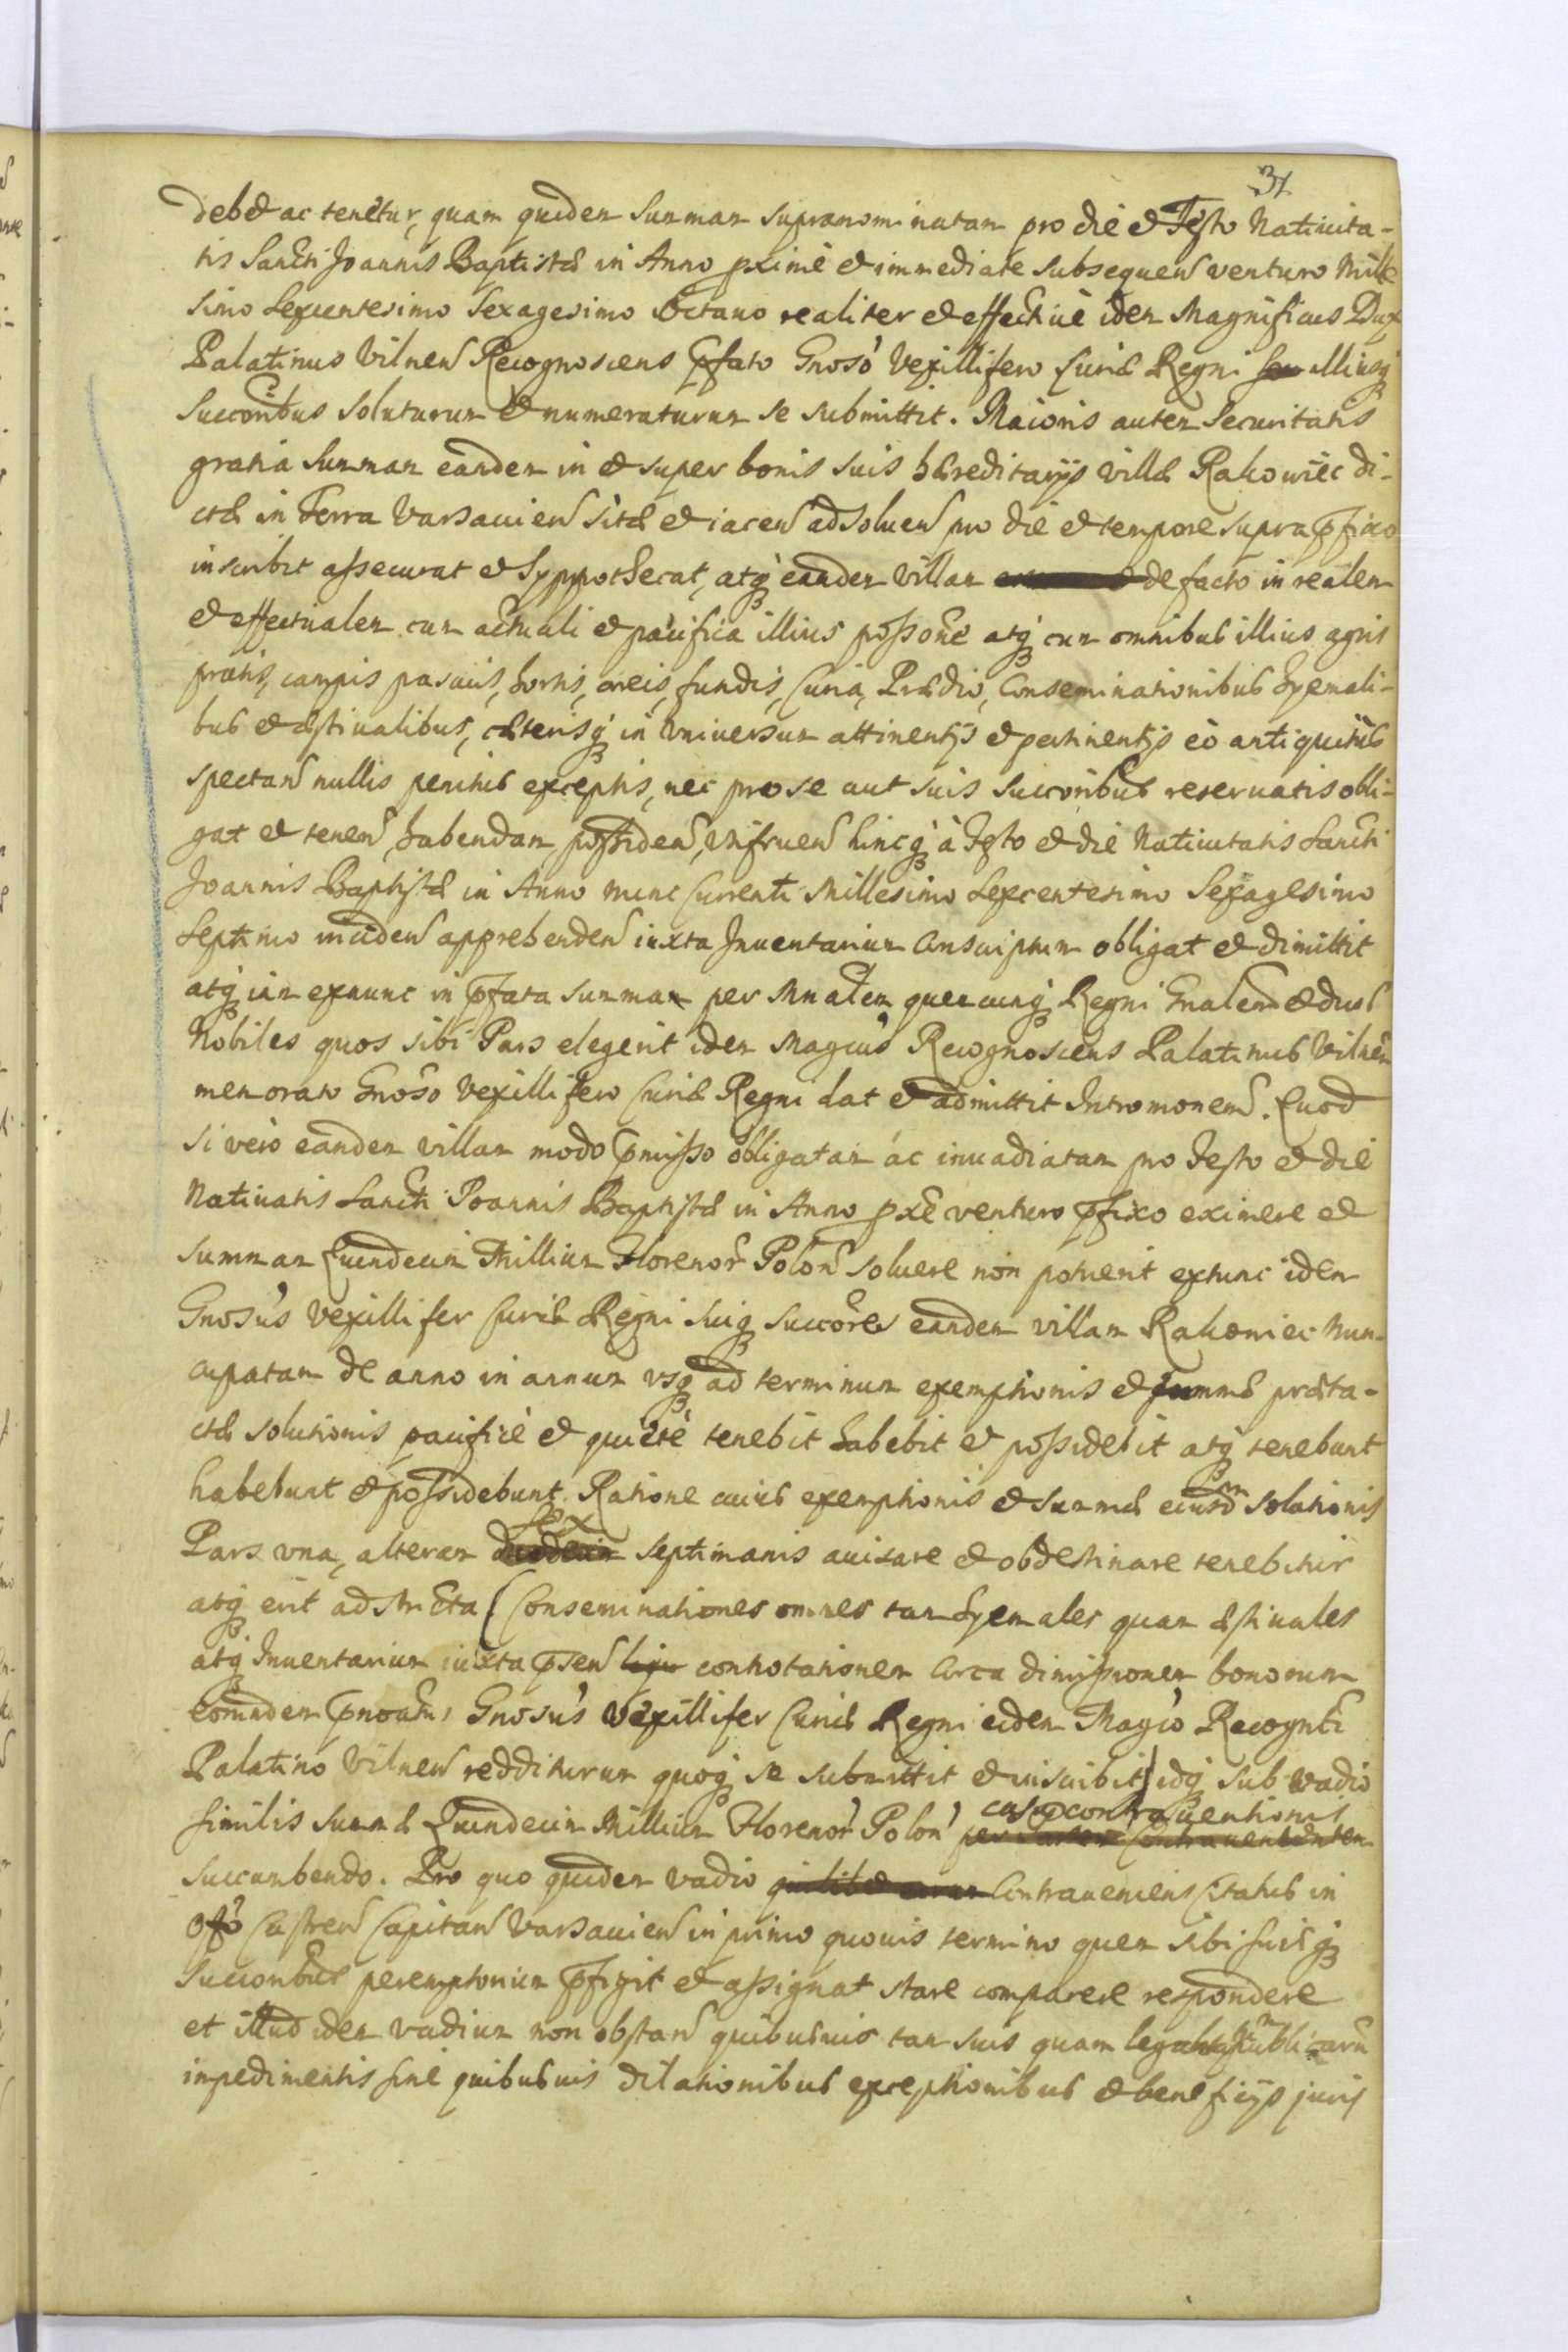 31
debet ac tenetur, quam quidem summam supranominatam pro die et Festo Natiuita-
tis Sancti Joannis Baptistæ in Anno pximè et immediate subsequen venturo Mille
simo Sexcentesimo Sexagesimo Octauo realiter et effectiuè idem Magnificus Dux
Palatinus Vilnen Recognoscens pfato Gnoso Vexillifero Curiæ Regni seu illiusq
Succoribus soluturum et numeraturum se submittit. Maioris autem Securitatis
gratia Summam eandem in et super bonis suis hæreditarijs villæ Rakowiec di-
ctæ in Terra Varsauien sitæ et iacen ad soluen pro die et tempore supra pfixo
inscribit assecurat et hyppothecat, atq eandem villam de facto in realem
et effectualem cum actuali et pacifica illius possone atq cum omnibus illius agris
pratis, campis pascuis, hortis, areis, fundis, Curia, Prædio, Conseminationibus hyemali-
bus et æstiualibus, cæterisq in vniuersum attinentijs et pertinentijs eò antiquitus
spectan nullis penitus exceptis, nec pro se aut suis succoribus reseruatis obli-
gat et tenen, habendam, possiden, vtifruen hincq à Festo et die Natiuitatis Sancti
Joannis Baptistæ in Anno nunc Currenti Millesimo Sexcentesimo Sexagesimo
Septimo inciden apprehenden iuxta Inuentarium conscriptum obligat et dimittit
atq iam exnunc in pfata summam per Mnalem quemcunq Regni Gnalem et duos
Nobiles quos sibi Pars elegerit idem Magcus Recognoscens Palatinus Vilnen
memorato Gnoso Vexillifero Curiæ Regni dat et admittit Intromonem. Quod
si vero eandem villam modo pmisso obligatam ac inuadiatam pro Festo et die
Natiuatis Sancti Joannis Baptistæ in Anno pxè venturo pfixo eximere et
summam Quindecim Millium Florenor Polon soluere non potuerit extunc idem
Gnosus Vexillifer Curiæ Regni suiq succores eandem villam Rakowiec Nun-
cupatam de anno in annum vsq ad terminum exemptionis et summæ præta-
ctæ solutionis pacificè et quietè tenebit habebit et possidebit atq tenebunt
habebunt et possidebunt. Ratione cuius exemptionis et summæ eiusdm solutionis
Sex
Pars vna, alteram duodecim septimanis auisare et obdestinare tenebitur
atq erit adstricta (Conseminationes omnes tam hyemales quam æstiuales
atq Inuentarium iuxta psen connotationem circa dimissionem bonorum
eorundem Gnosus Vexillifer Curiæ Regni eidem Magco Recognti
Palatino Vilnen redditurum quoq se submittit et inscribit) idq sub vadio
casu contrauentionis
similis summæ Quindecim Millium Florenor Polon per Partem Contrauenientem
succumbendo. Pro quo quidem vadio Contraueniens Citatus in
Offo Castren Capitan Varsauien in primo quouis termino quem sibi suisq
succoribus peremptorium pfigit et assignat stare comparere respondere
et illud idem vadium non obstan quibusuis tam suis quam publicarum
impedimentis sine quibusuis dilationibus exceptionibus et beneficijs juris